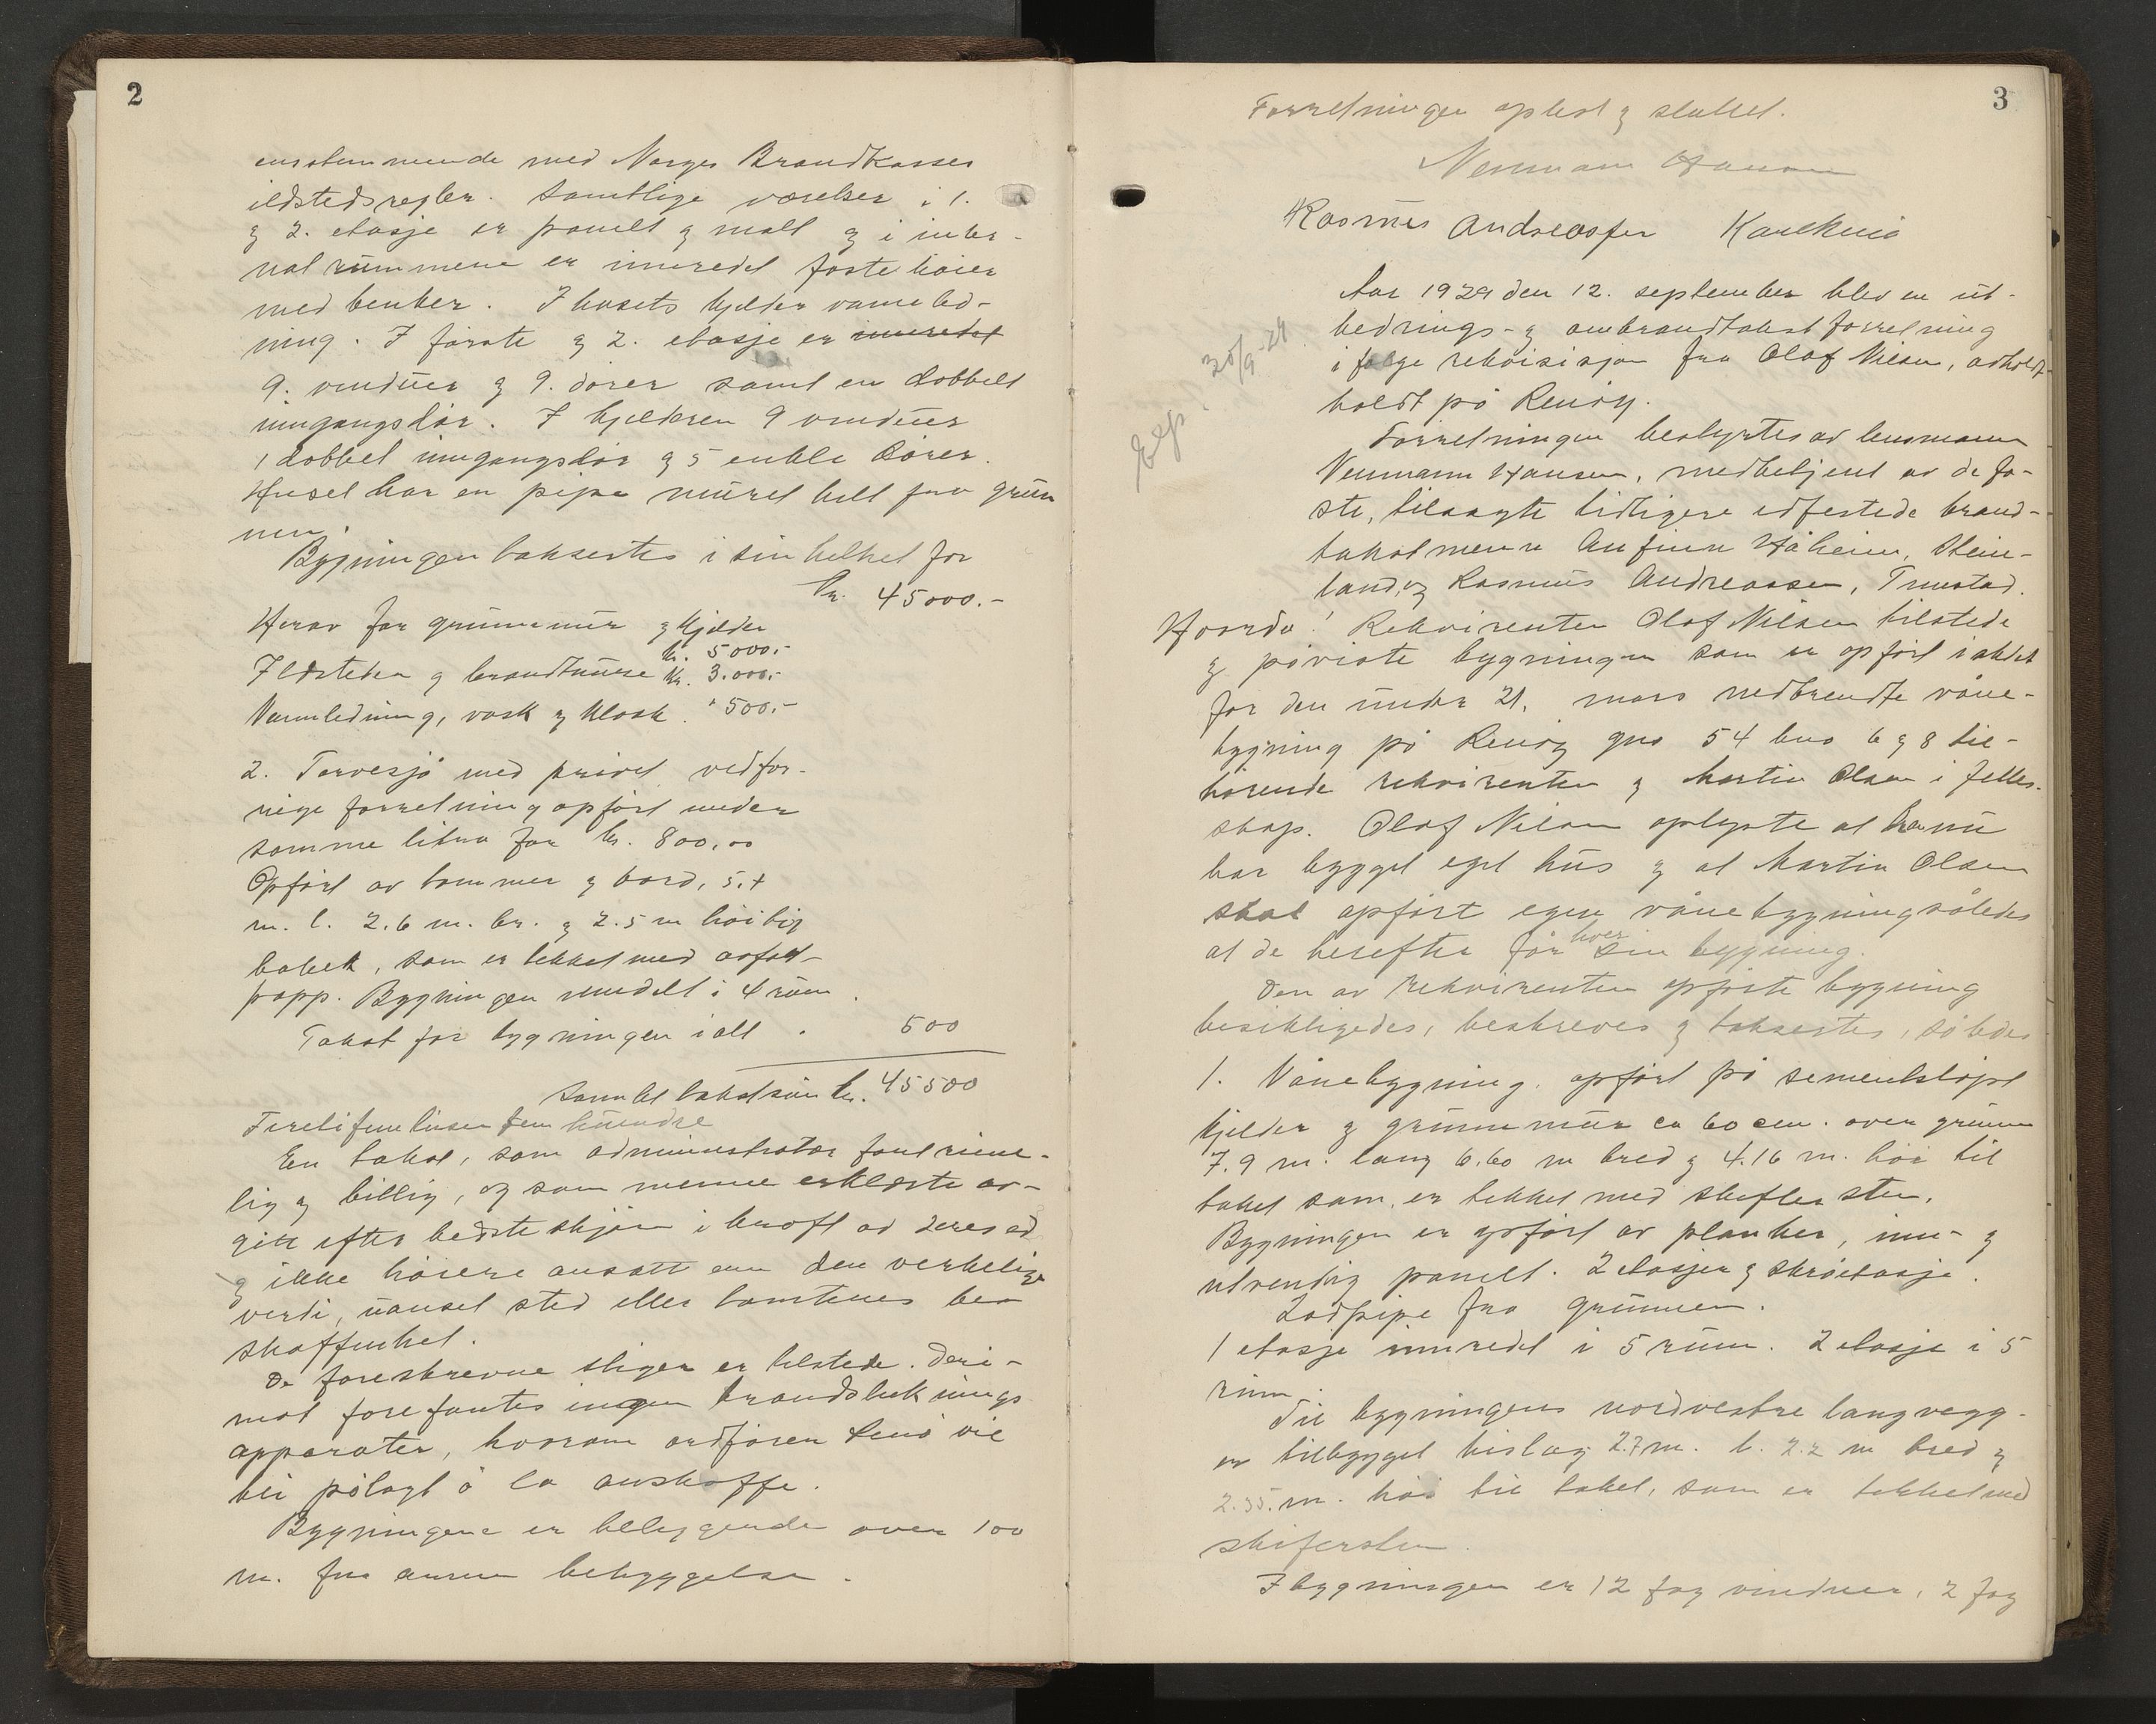 2
ensstemmende med Norges Brandkasses
ildstedsregler. Samtlige værelser i 1.
og 2. etasje er panelt og malt og i inter-
natrummene er innredet faste køier
med benker. I husets kjelder vannled-
ning. I første og 2. etasje er innredet
9. vinduer og 9. dører samt en dobbelt
inngangsdør. I kjelderen 9 vinduer
1 dobbel inngangsdør og 5 enkle dører.
Huset har en pipe muret helt fra grun
nen.
Bygningen taksertes i sin helhet for
kr. 45000.-
Herav for grunnmur og kjelder
kr. 5000.-
Ildsteder og brandmure kr. 3.000.-
Vannledning, vask og klosk. " 500.-
2. Torvesjå med privet, ved for-
rige forretning opført under
samme litra for kr. 800,00
Opført av tømmer og bord, 5.+
m. l. 2.6 m. br. og 2.5 m høi til
taket, som er tekket med asfalt-
papp. Bygningen inndelt i 4 rum.
Takst for bygningen ialt . 500
Samlet takstsum kr. 45500
Firetifemtusen fem hundre
En takst, som administrator fant rime-
lig og billig, og som mennene erklærte av-
gitt efter bedste skjønn i kraft av deres ed
og ikke høiere ansatt enn den verkelige
verdi, uanset sted eller tomtenes be-
skaffenhet.
De foreskrevne stiger er tilstede. Deri-
mot forefantes ingen brandsluknings
apparater, hvorom ordføren vil
bli pålagt å la anskaffe.
Bygningene er beliggende over 100
m. fra annen bebyggelse.
3
Forretningen oplest og sluttet.
Neumann Hansen
Rasmus Andreassen Karl
Aar 1929 den 12. september blev en ut-
bedrings- og ombrandtakstforretning
i følge rekvisisjon fra Olaf Nilsen, avholdt-
holdt på Renøy.
Exp. 20/9-29
Forretningen bestyrtes av lensmann
Neumann Hansen, medbetjent av de fa-
ste, tilsagte tidligere edfestede brand-
takstmenn Anfinn Håheim, Stein-
land, og Rasmus Andreassen, Trustad.
Hvorda! Rekvirenten Olaf Nilsen tilstede
og påviste bygningen som er opført istedet
for den under 21. mars nedbrendte våne-
bygning på Renøy gno 54 bno 6 og 8 til-
hørende rekvirenten og Martin Olsen i felles-
skap. Olaf Nilsen oplyste at han nu
har bygget eget hus og at Martin Olsen
skal opført egen vånebygning således
at de herefter får hver sin bygning.
Den av rekvirenten opførte bygning
besiktigedes, beskreves og taksertes, således
1. Vånebygning, opført på sementstøpt
kjelder og grunnmur ca 60 cm. over grunn
7.9 m. lang 6.60 m bred og 4.16 m. høi til
taket som er tekket med skiffer sten.
Bygningen er opført av planker, inn- og
utvendig panelt. 2 etasjer og skråetasje.
Lodpipe fra grunnen.
1 etasje innredet i 5 rum. 2 etasje i 5
rum.
Til bygningens nordvestre langvegg
er tilbygget bislag 2.7 m. l. 2.2 m bred og
2.35. m. høi til taket, som er tekket med
skifersten.
I bygningen er 12 fag vinduer, 2 fag